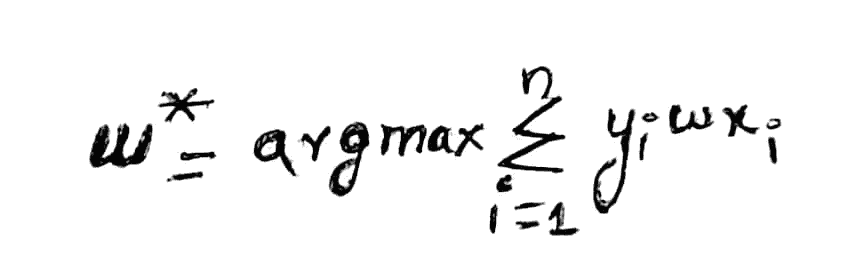 w* = argmax ∑_{i=1}^{n} y_i w x_i